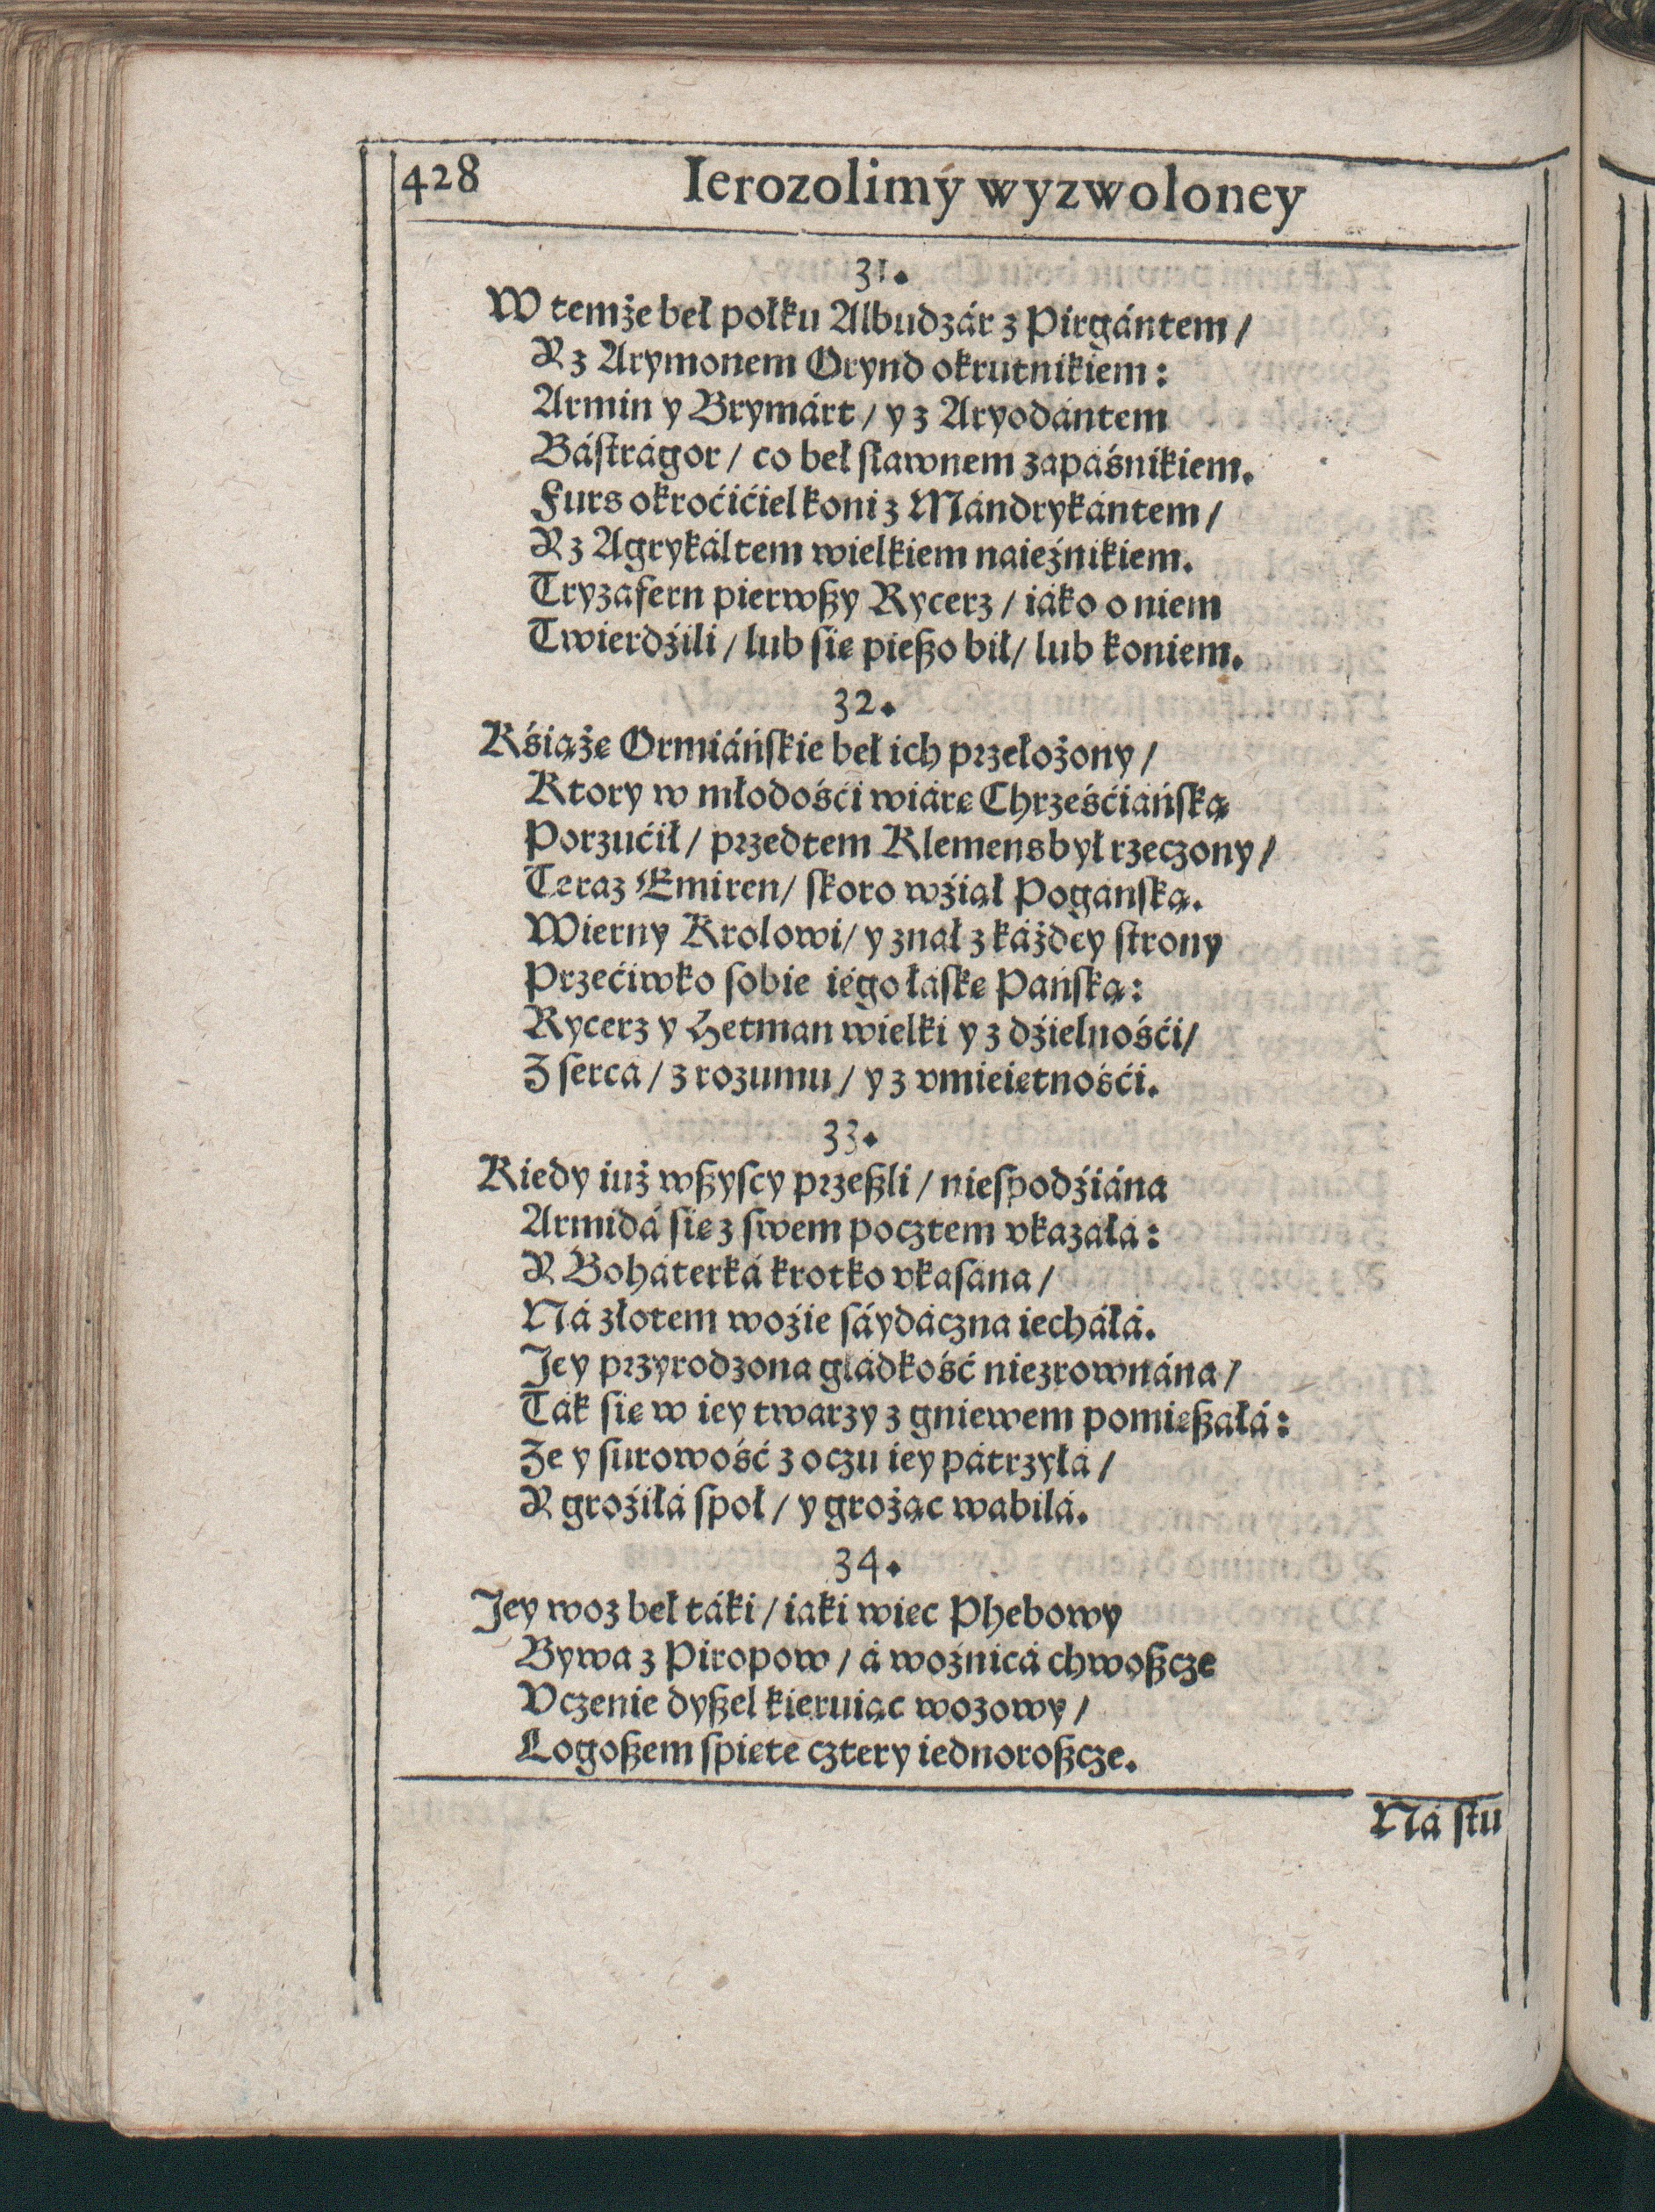 428 Ierozolimý wyzwoloney
31.
W temże beł połku Albudzár z Pirgántem /
Y z Arymonem Orynd okrutnikiem :
Armin y Brymárt / y z Aryodántem
Básträgor / co beł sławnem zapáśnikiem.
Furs okroćićiel koni z Mándrykántem /
Y z Agrykáltem wielkiem naieźnikiem.
Tryzafern pierwßy Rycerz / iáko o niem
Twierdźili / lub się pießo bił / lub koniem.
32.
Kśiążę Ormiáńskie beł ich przełożony /
Ktory w młodośći wiárę Chrześćiáńską
Porzućił / przedtem Klemens był rzeczony /
Teraz Emiren / skoro wźiął Pogánską.
Wierny Krolowi / y znał z káżdey strony
Przećiwko sobie iégo łáskę Páńską :
Rycerz y Hetman wielki y z dźielnośći /
Z sercá / z rozumu / y z vmieiętnośći.
33.
Kiedy iuż wßyscy przeßli / niespodźiána
Armidá się z swem pocztem vkazáłá :
Y Boháterká krotko vkasána /
Ná złotem woźie sáydáczna iecháłá.
Jey przyrodzona gládkość niezrownána /
Ták się w iey twarzy z gniewem pomießáłá :
Że y surowość z oczu iey pátrzyłá /
Y groźiłá społ / y grożąc wabiłá.
34.
Jey woz beł táki / iáki więc Phebowy
Bywa z Piropow / á woźnicá chwoßcze
Vczenie dyßel kieruiąc wozowy /
Logoßem spięte cztery iednoroßcze.
Ná stu